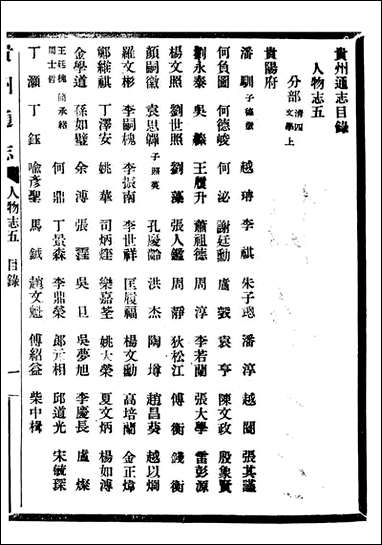 貴州通志目錄
人物志五
分部 清四 文學 上
貴陽府
潘馴 子德徵 越琦 李祺 朱子聰 潘淳 越闓 張其謹
何負圖 何德峻 何泌 謝廷勳 盧發 袁亨 陳文政 殷象賢
劉永泰 吳 王履升 蕭祖德 周淳 李若蘭 張大學 雷彭源
楊文照 劉世照 劉藻 張人鑑 周靜 狄松江 傅衡 錢衡
顏嗣徽 袁思韠 子照英 孔慶齡 洪杰 陶墫 趙昌葵 越以炯
羅文彬 李嗣槐 李振南 李世祥 匡履福 楊文勳 高培蘭 金正煒
鄭維祺 丁澤安 姚華 司炳煃 樂嘉荃 姚大榮 夏文炳 楊如溥
金學道 孫如璧 余溥 張 吳旦 吳夢旭 李慶長 盧燦
王廷槐 周士哲 簡承格 何鼎 丁景森 李鼎榮 郎元相 邱道光 宋毓琛
丁灝 丁鈺 喩彥聖 馬鉞 趙文魁 傅紹益 柴中楫
貴州通志 人物志五 目錄 一